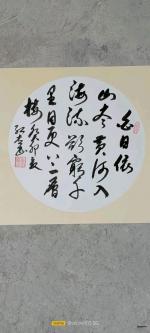 白日依
山尽黄河入
海流欲窮千
里目更上一層
楼癸卯夏